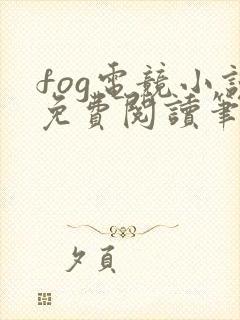 fog電競小説
免費閱讀筆
夕頁